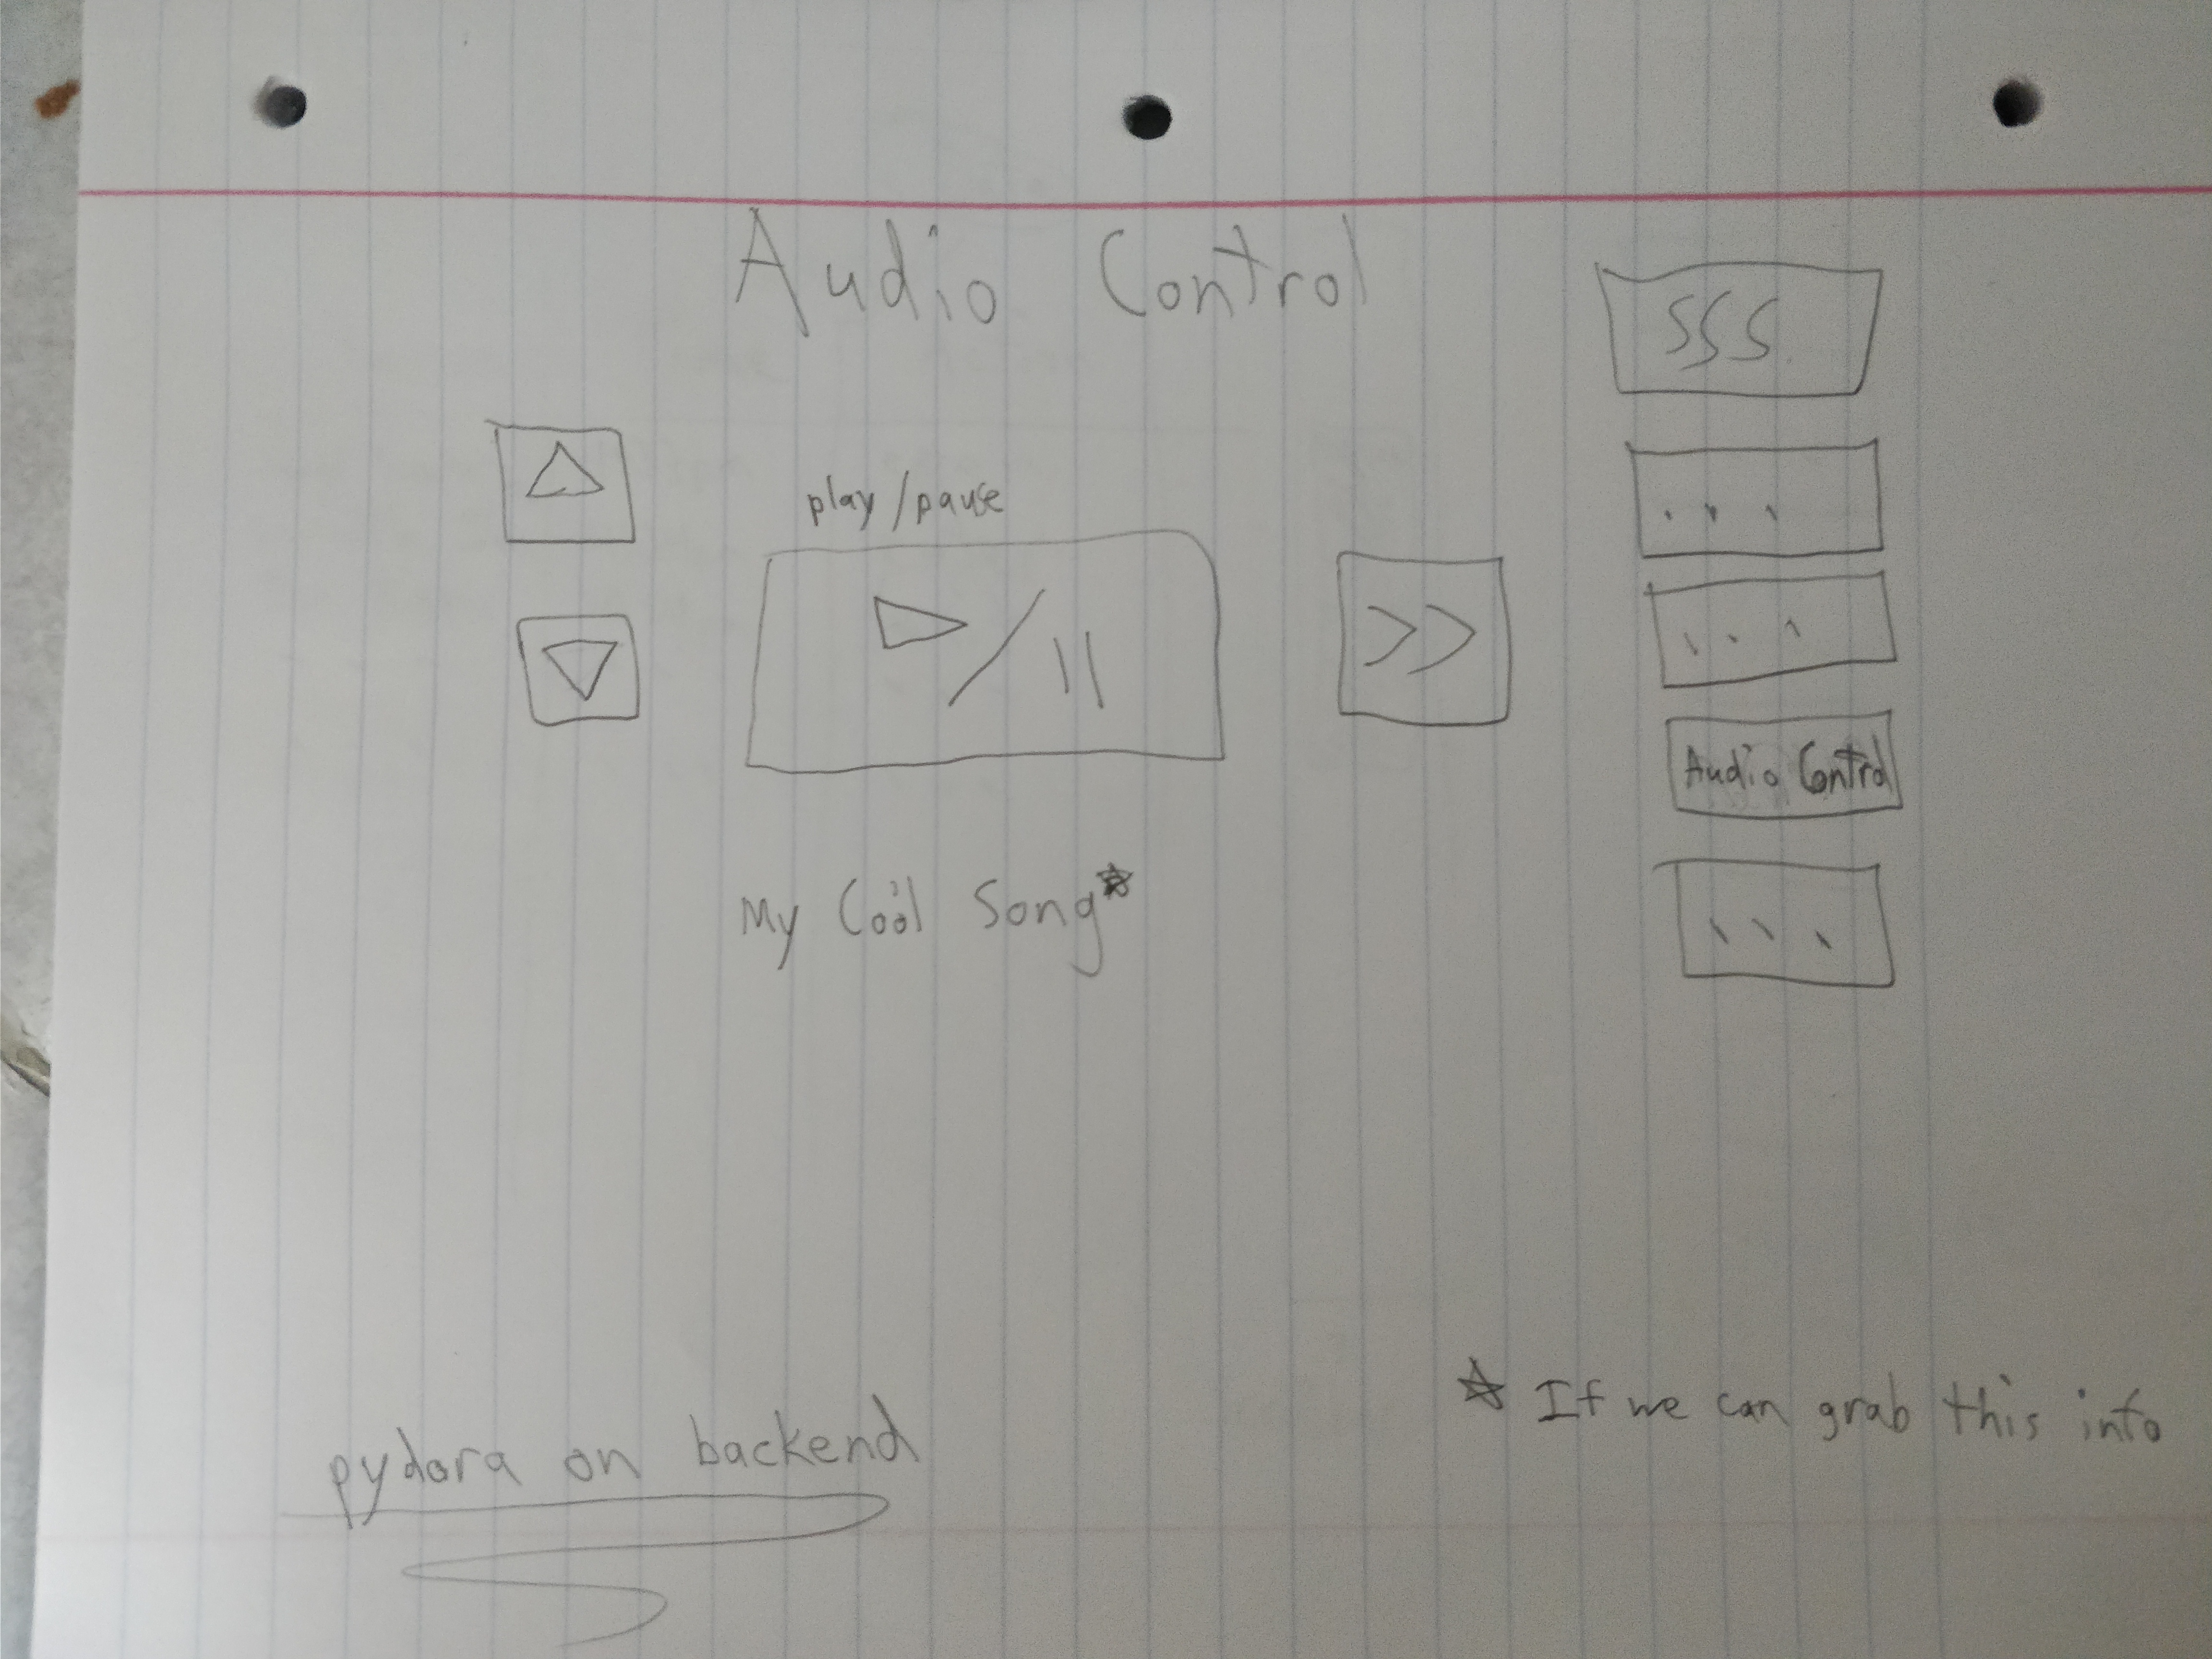 Audio Control
SSS
play/pause
...
...
Audio Control
My Cool Song*
...
* If we can grab this info
pydora on backend